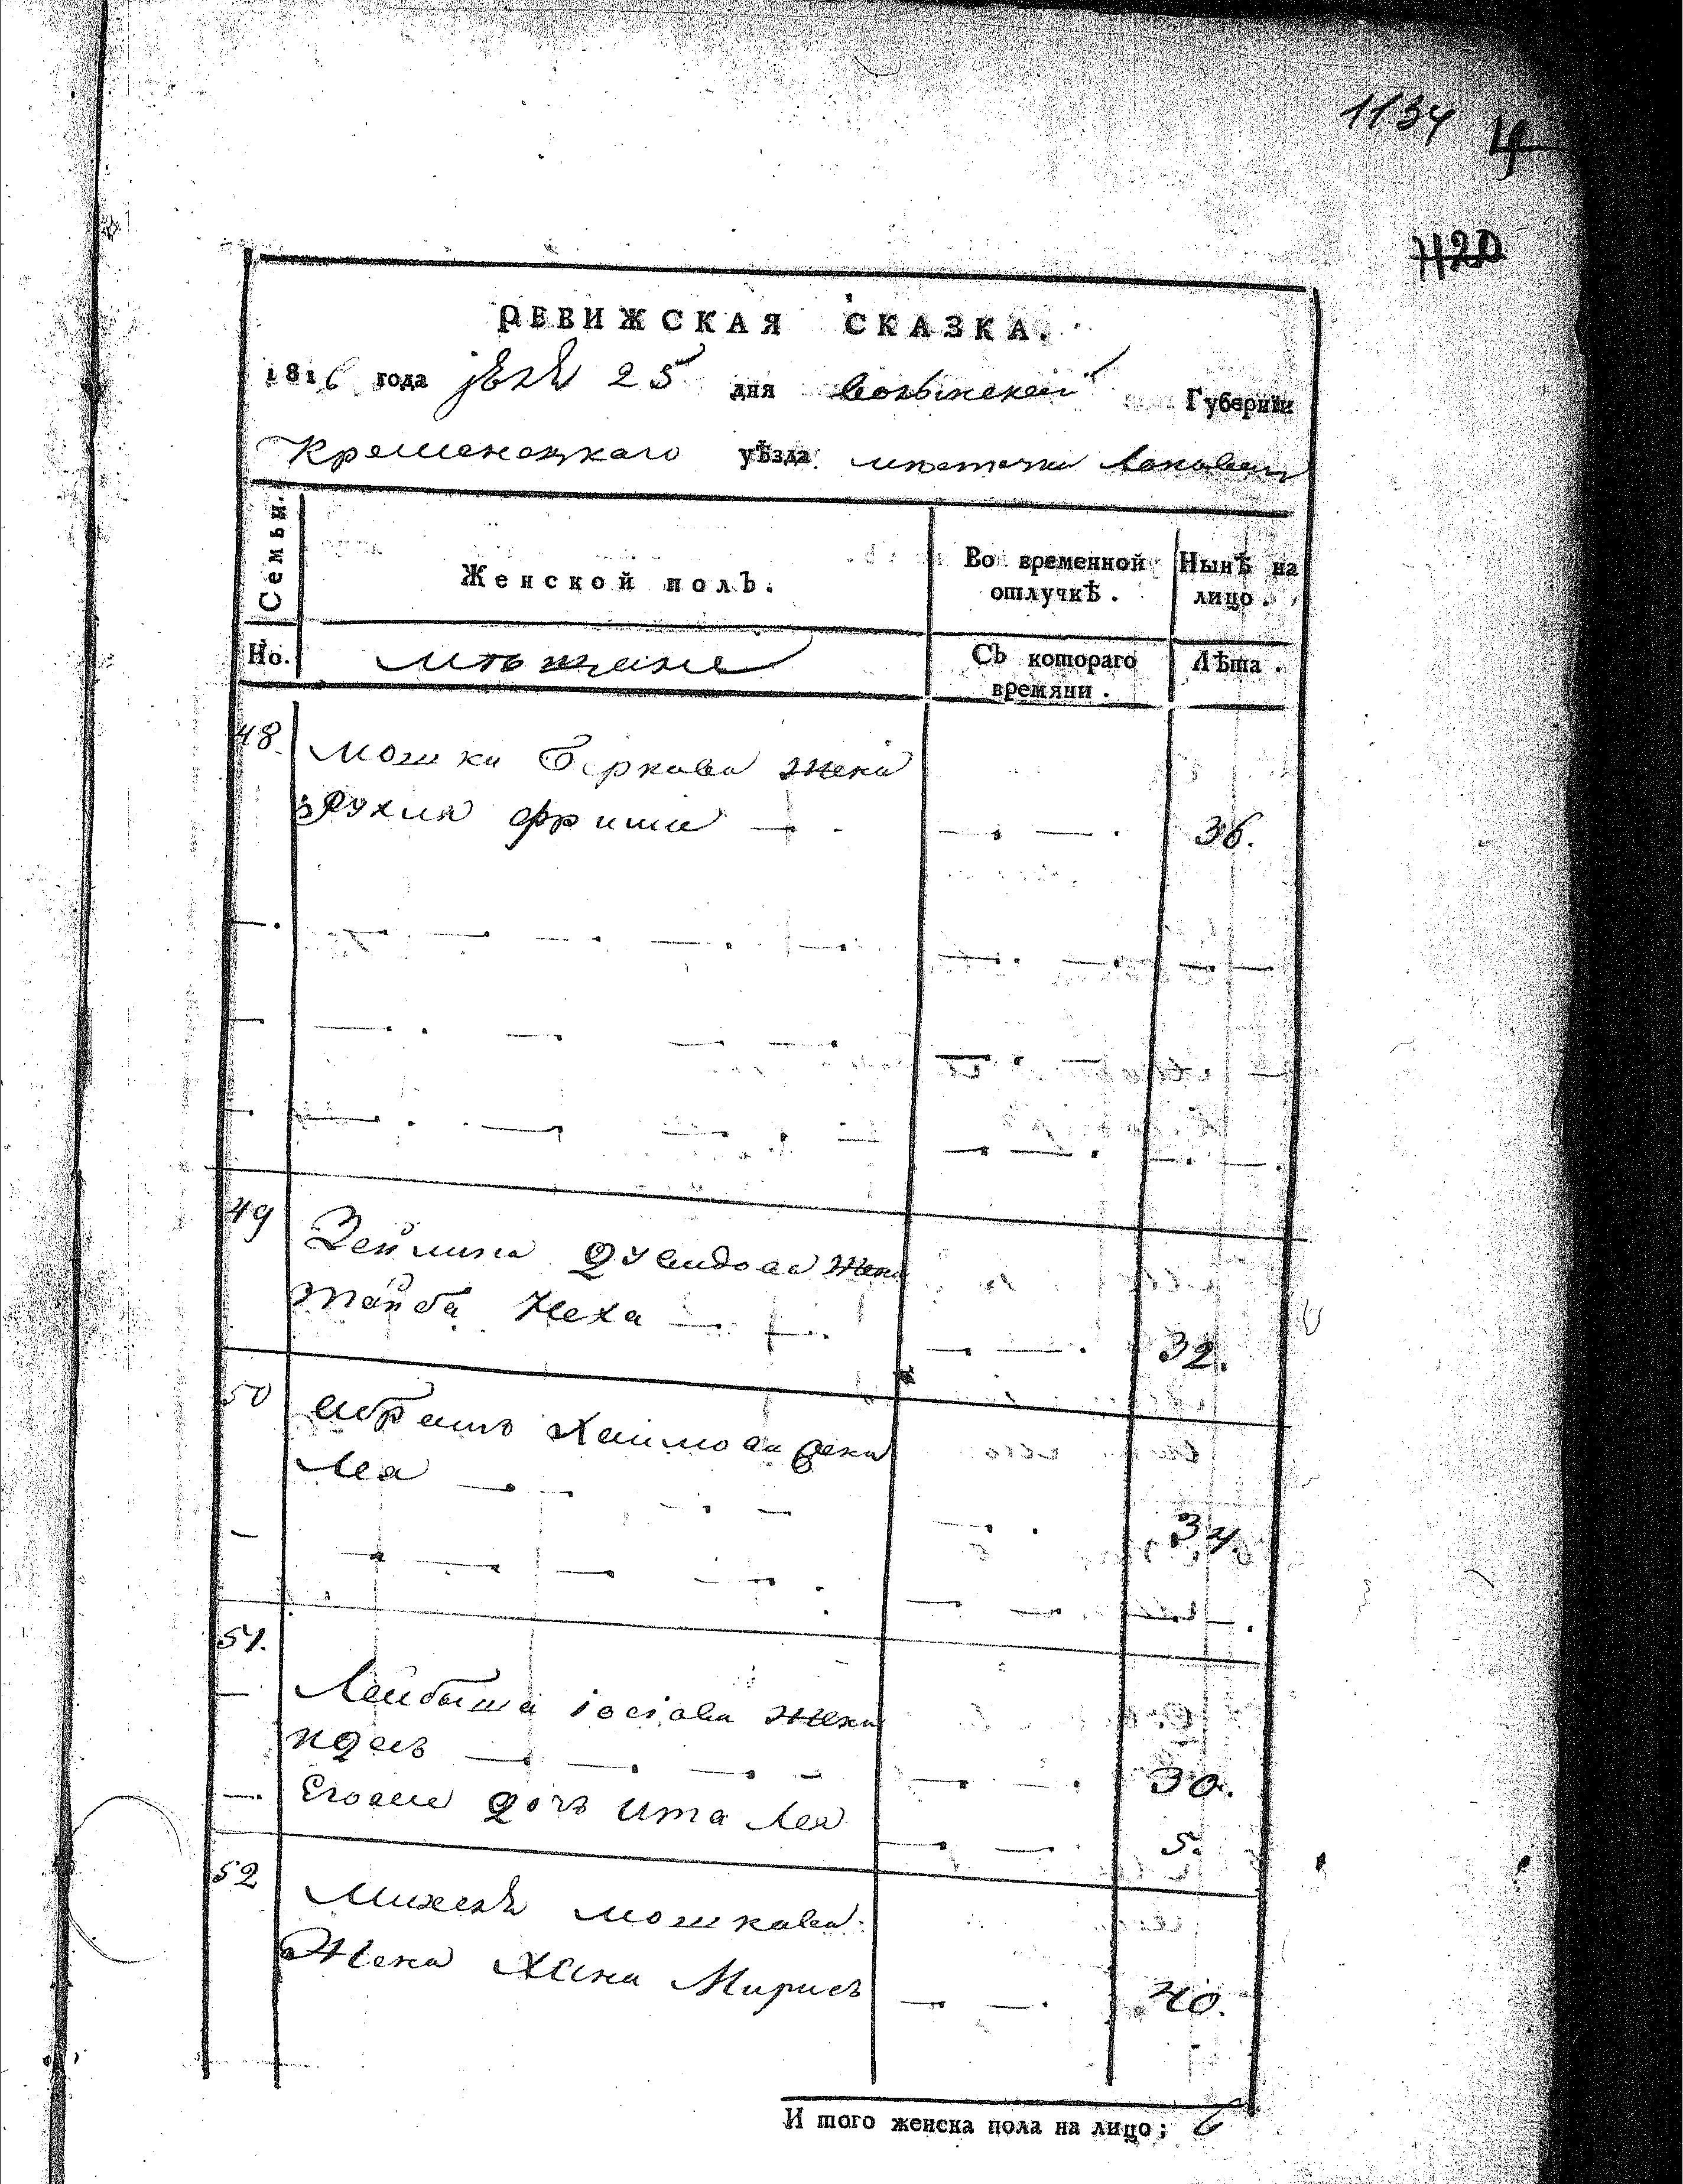 1134 4
1120
РЕВИЖСКАЯ СКАЗКА.
1816 года 25 дня волынской Губернїи
Кременецкаго уѣзда мѣстечка
Семьи. Женской полъ. Во временной отлучкѣ. Нынѣ на лицо.
Но. мѣщане Съ котораго времяни. Лѣта.
48. мошки Беркова жена
Рухля фрима — — 36.
49 Зейлика Дувидова жена
тайба Неха — — 32.
50 абрамъ Хаимова жена
Лея — — 34.
51. Лейбыша іосіова жена
— — 30.
Егоже дочь ита Лея — — 5.
52 Михель мошкова
Жена Хана Мирисъ — — 40.
И того женска пола на лицо; 6